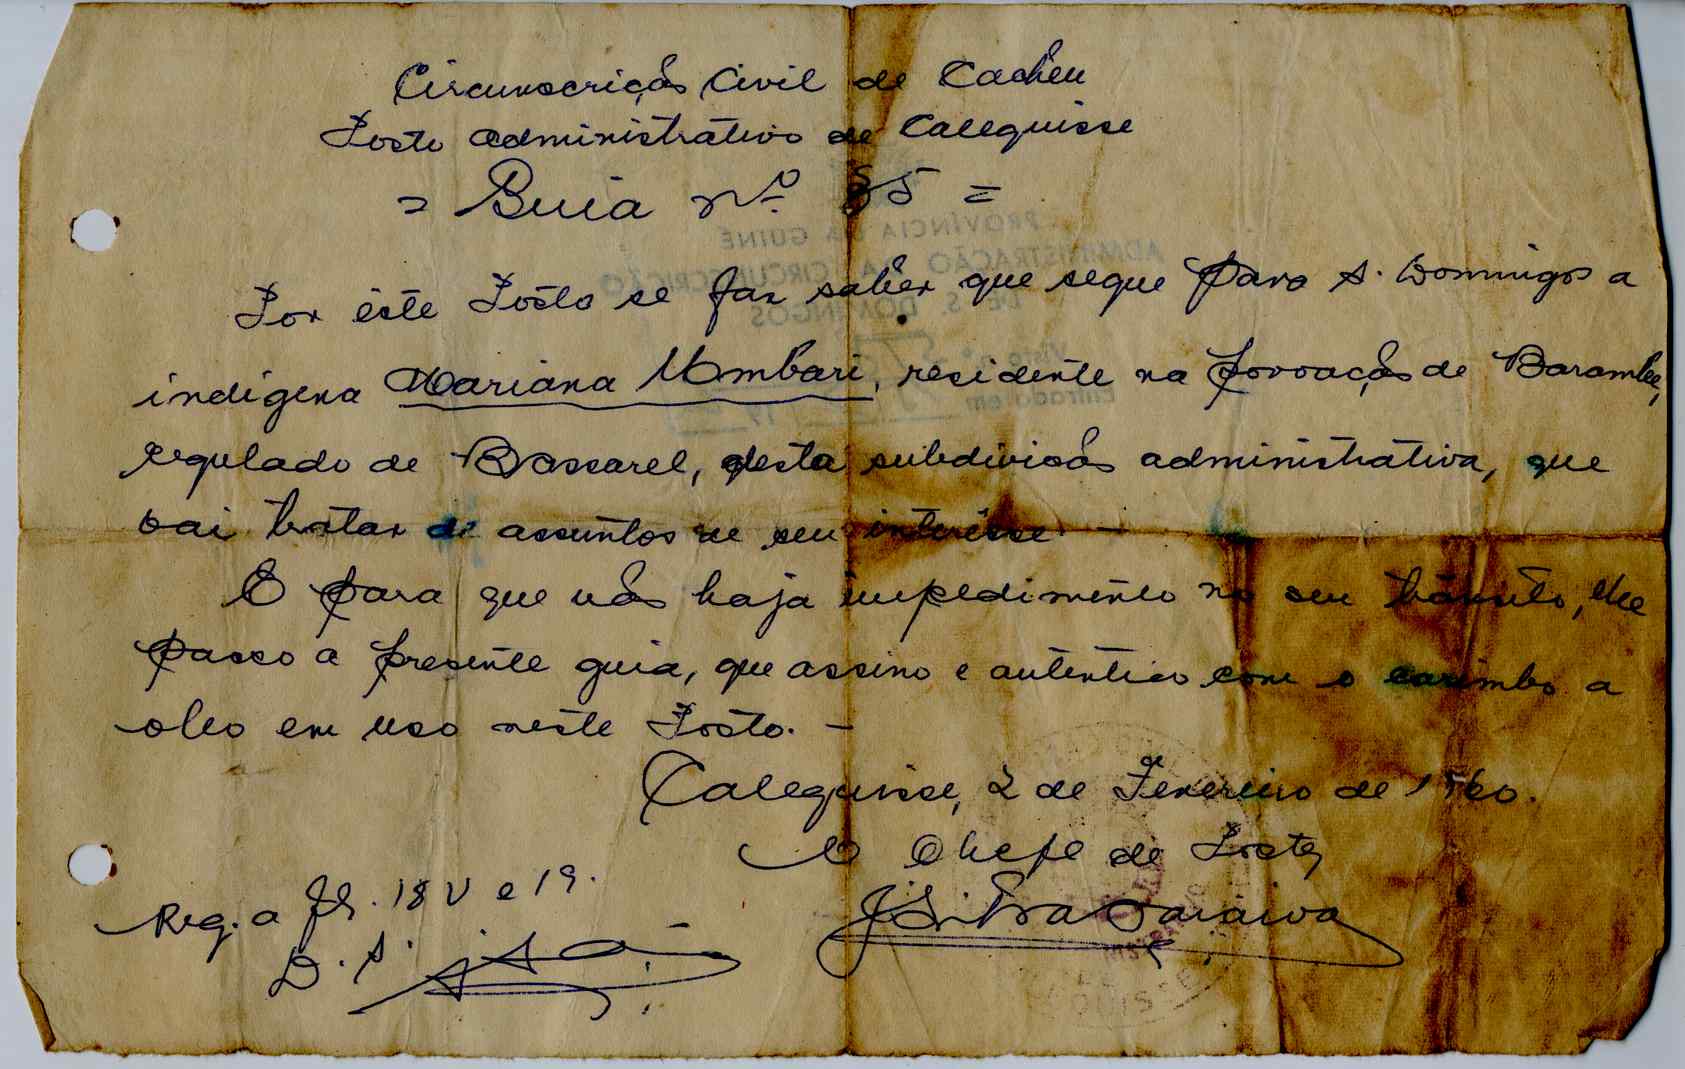 Circunscrição Civil de Cacheu
Posto administrativo de Calequisse
= Guia nº 85 =
PROVÍNCIA DA GUINÉ
ADMINISTRAÇÃO DA CIRCUNSCRIÇÃO
DE S. DOMINGOS
Por êste Posto se faz saber que segue para S. Domingos a
Visto nº
indígena Mariana Umbari, residente na povoação de Barambe,
Entrada em
regulado de Bassarel, desta subdivisão administrativa, que
vai tratar de assuntos de seu interêsse. —
E para que não haja impedimento no seu trânsito, lhe
passo a presente guia, que assino e autentico com o carimbo a
oleo em uso neste Posto. —
Calequisse, 2 de Fevereiro de 1960.
O Chefe de Posto,
Reg. a fls. 18 V e 19.
Saraiva
D. S.
QUISSE